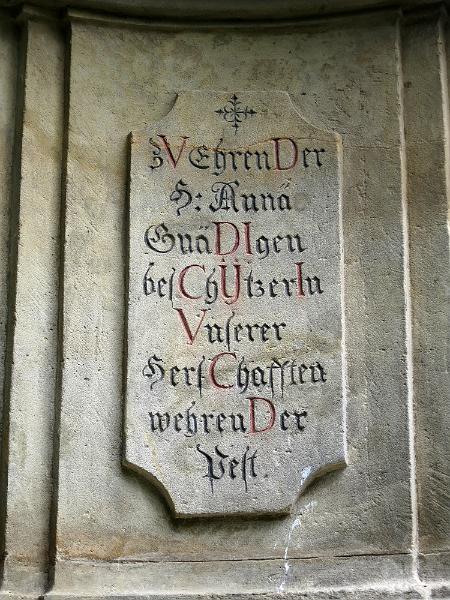 zV EhrenD Der
H: Annä
GnäDIgen
besChÿtzerIn
Vnserer
HersChafften
wehrenD Der
Pest.